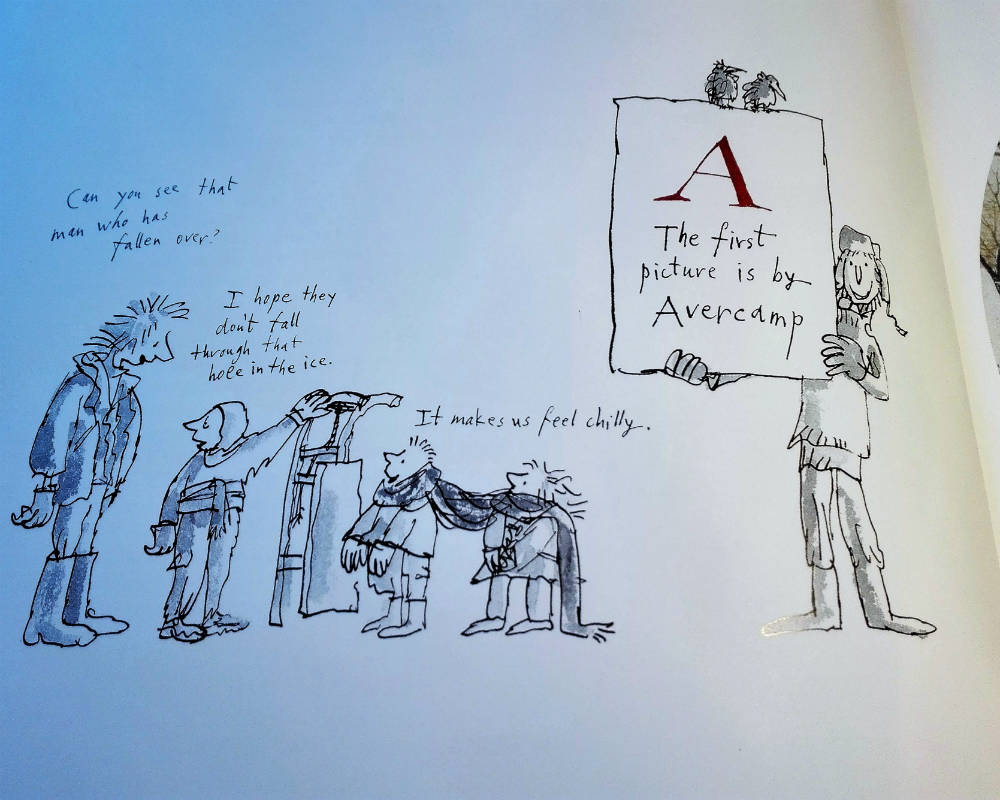 Can you see that
man who has
fallen over?
I hope they
don't fall
through that
hole in the ice.
It makes us feel chilly.
A
The first
picture is by
Avercamp